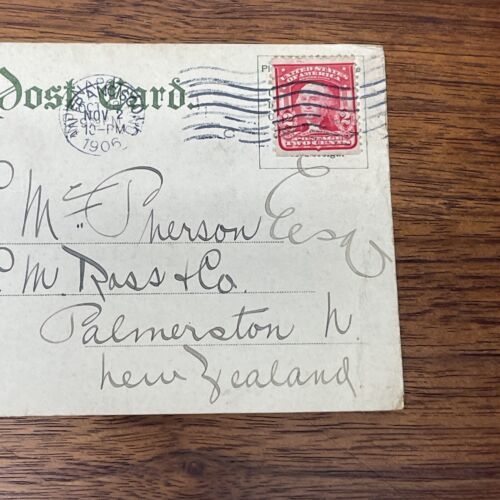 Post Card.
NOV 2
10-PM
1906
UNITED STATES
OF AMERICA
2 2
POSTAGE
TWO CENTS
McPherson Esq
C. M. Ross & Co.
Palmerston N
New Zealand